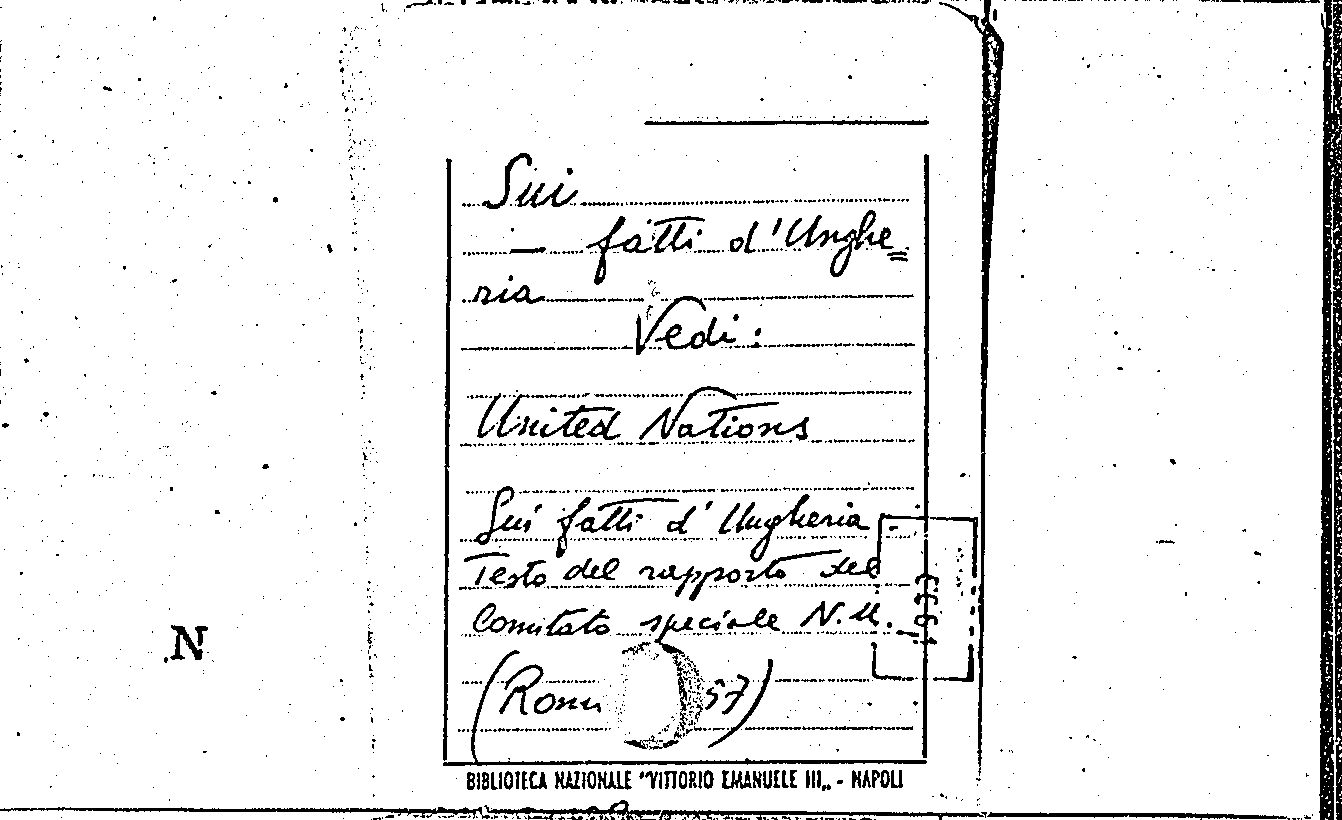 Sui
— fatti d'Unghe=
ria
Vedi:
United Nations
Sui fatti d'Ungheria -
Testo del rapporto del
Comitato speciale N.U.
(Roma 57)
BIBLIOTECA NAZIONALE "VITTORIO EMANUELE III„ - NAPOLI
N